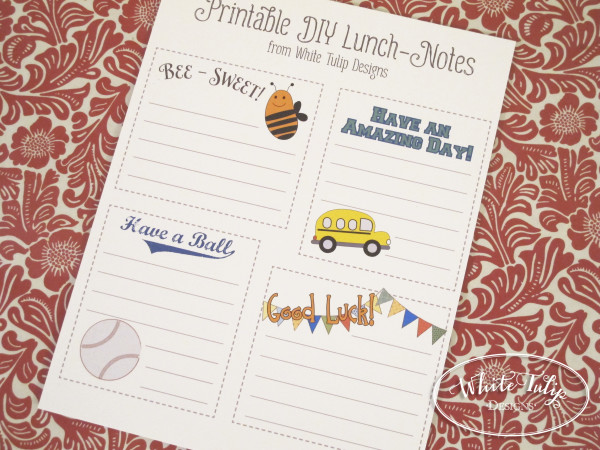 Printable DIY Lunch-Notes
from White Tulip Designs
Bee - Sweet!
Have an
Amazing Day!
Have a Ball
Good Luck!
White Tulip
Designs